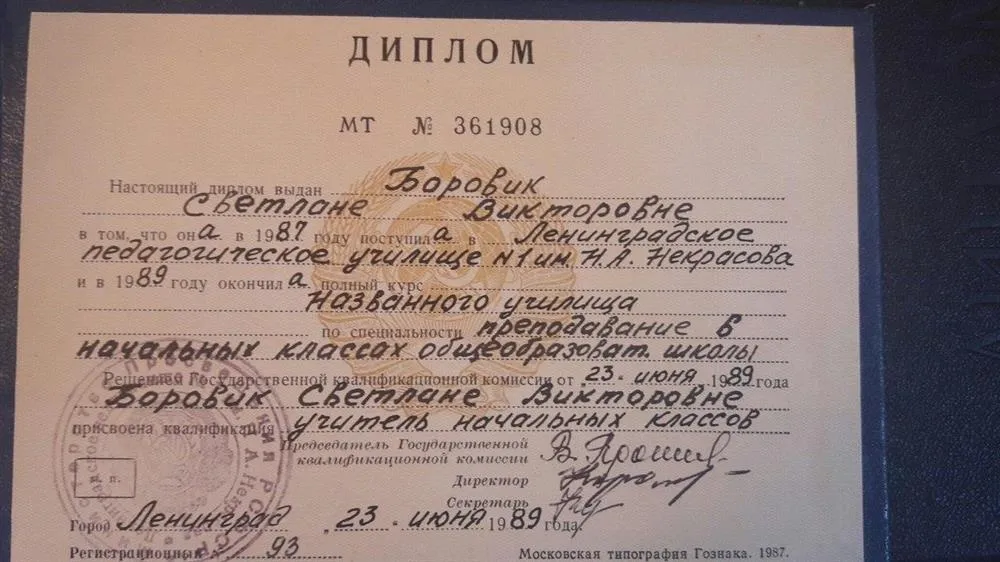 ДИПЛОМ
МТ № 361908
Настоящий диплом выдан Боровик
Светлане Викторовне
в том, что она в 1987 году поступила в Ленинградское
педагогическое училище №1 им. Н.А. Некрасова
и в 1989 году окончила полный курс
названного училища
по специальности преподавание в
начальных классах общеобразоват. школы
Решением Государственной квалификационной комиссии от 23 июня 1989 года
Боровик Светлане Викторовне
присвоена квалификация учитель начальных классов
Председатель Государственной
квалификационной комиссии
Директор
Секретарь
м. п.
Город Ленинград 23 июня 1989 года.
Регистрационный № 93
Московская типография Гознака. 1987.